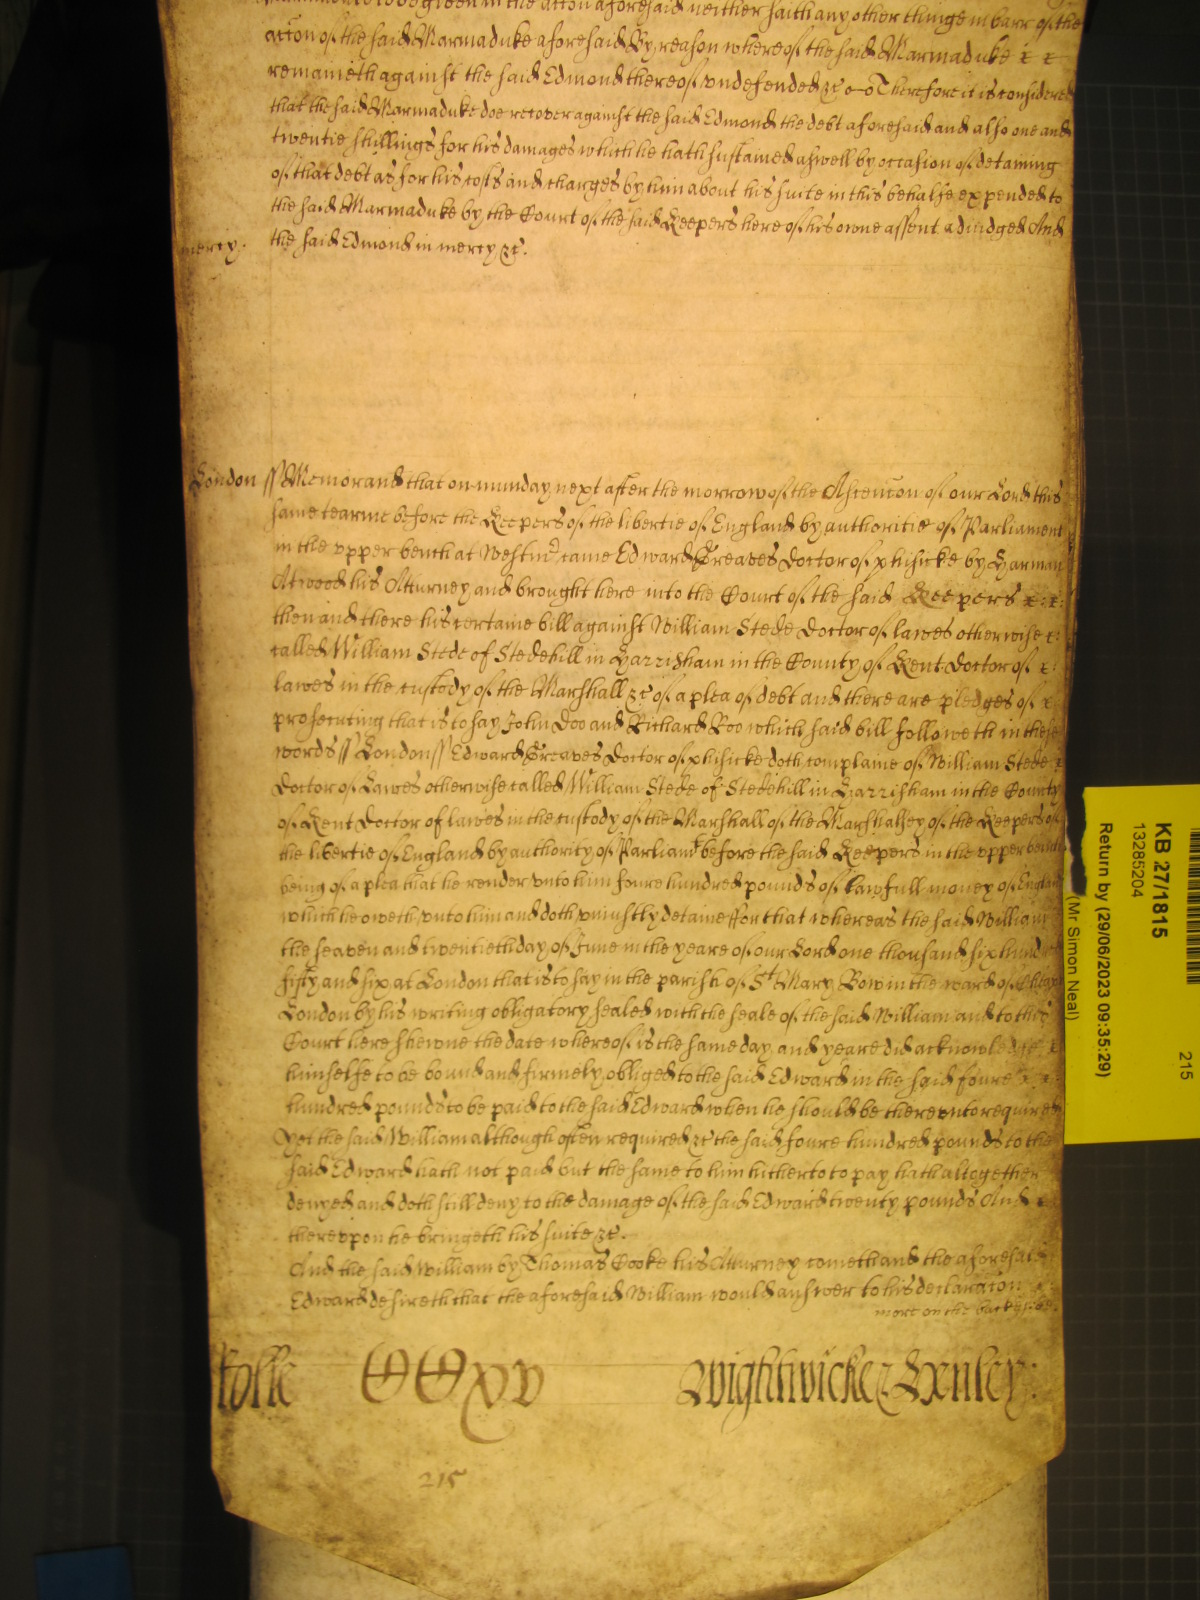 to be given in the accon aforesaid neither saith any other thinge in barr of the
accon of the said Marmaduke aforesaid By reason whereof the said Marmaduke
remaineth against the said Edmond thereof undefended &c Therefore it is considered
that the said Marmaduke doe recover against the said Edmond the debt aforesaid and also one and
twentie shillings for his damages which he hath sustained aswell by occasion of detaining
of that debt as for his costs and charges by him about his suite in this behalfe expended to
the said Marmaduke by the Court of the said Keepers here of his owne assent adiudged And
mercy. the said Edmond in mercy &c.
London ss Memorand that on munday next after the morrow of the Ascencon of our Lord this
same tearme before the Keepers of the libertie of England by authoritie of Parliament
in the vpper bench at Westmr came Edward Greaves Doctor of phisicke by Harman
Atwood his Atturney and brought here into the Court of the said Keepers
then and there his certaine bill against William Stede Doctor of lawes otherwise
called William Stede of Stedehill in Harrisham in the County of Kent Doctor of
lawes in the custody of the Marshall &c of a plea of debt and there are pledges of
prosecuting that is to say John Doo and Richard Roo which said bill followeth in these
words ss London ss Edward Greaves Doctor of phisicke doth complaine of William Stede
Doctor of Lawes otherwise called William Stede of Stedehill in Harrisham in the County
of Kent Doctor of lawes in the custody of the Marshall of the Marshalsey of the Keepers of
the libertie of England by authority of Parliamt before the said Keepers in the vpper bench
being of a plea that he render vnto him foure hundred pounds of lawfull money of England
which he oweth vnto him and doth vniustly detaine ffor that whereas the said William
the seaven and twentieth day of June in the yeare of our Lord one thousand six hundred
fifty and six at London that is to say in the parish of St Mary Bow in the ward of Cheap
London by his writing obligatory sealed with the seale of the said William and to this
Court here shewne the date whereof is the same day and yeare did acknowledge
himselfe to be bound and firmely obliged to the said Edward in the said foure
hundred pounds to be paid to the said Edward when he should be therevnto required
Yet the said William although often required &c the said foure hundred pounds to the
said Edward hath not paid but the same to him hitherto to pay hath altogether
denyed and doth still deny to the damage of the said Edward twenty pounds And
therevpon he bringeth his suite &c.
And the said William by Thomas Cooke his Atturney cometh and the aforesaid
Edward desireth that the aforesaid William would answer to his declaracon
more on the back side
Rolle CCxv Wightwicke &
215
KB 27/1815 215
13285204
Return by (29/06/2023 09:35:29)
(Mr Simon Neal)